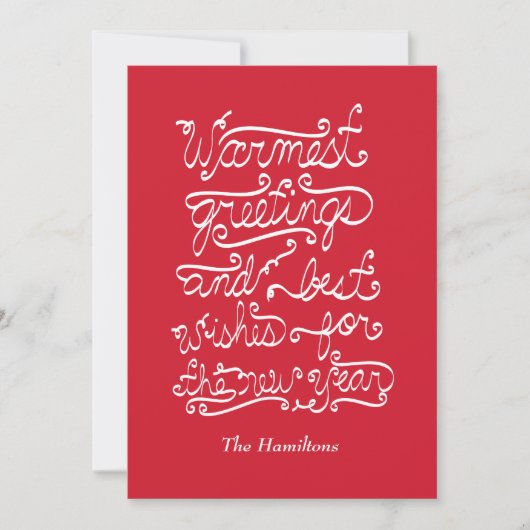 Warmest
greetings
and best
wishes for
the new year
The Hamiltons